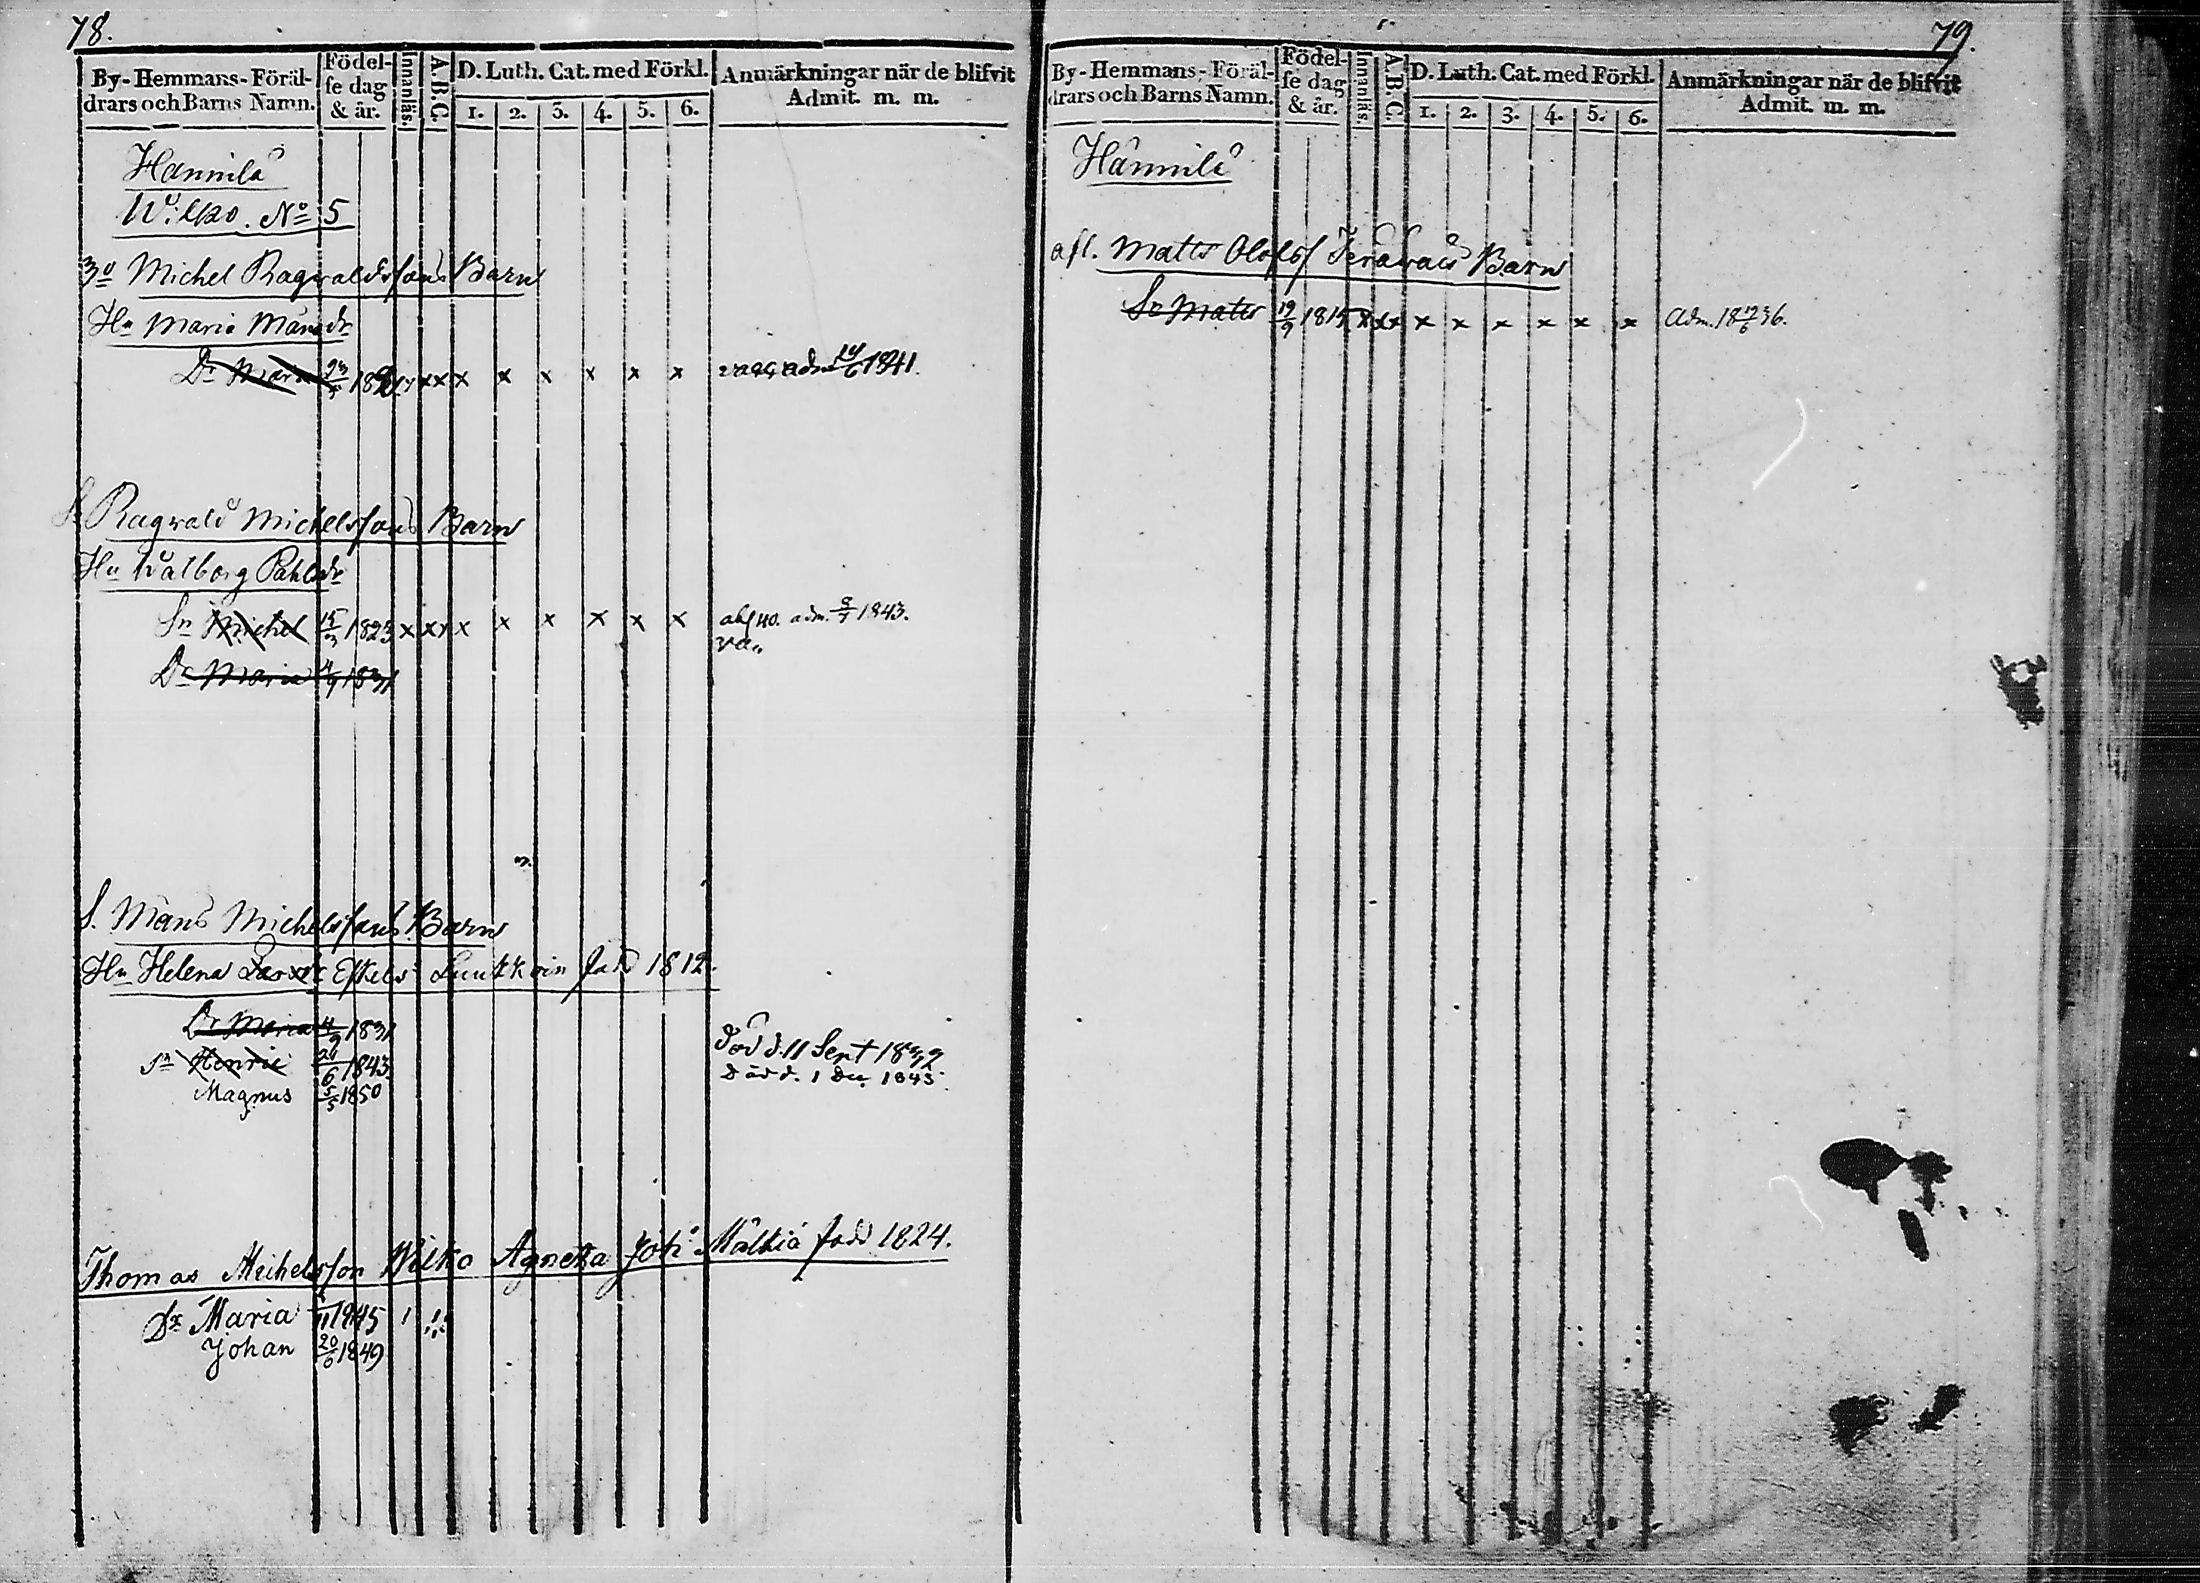 78.
By-Hemmans-Föräl-
drars och Barns Namn.
Födel-
se dag
& år.
Innanläs.
A.B.C.
D. Luth. Cat. med Förkl.
1. 2. 3. 4. 5. 6.
Anmärkningar när de blifvit
Admit. m. m.
Hannila
Wilko. No 5
3o Michel Ragvaldssons Barn
Hu Maria Månsdr
Dr Maria x x x x x x adm 1841.
Sn Ragvald Michelssons Barn
Hu Walborg Påhlsdr
Sn Michel 15/3 1823 x xx x x x x x x adm. 1843.
va..
Dr Maria 4/9 1831
S. Måns Michelssons Barn
Hu Helena Född 1812.
Dr Maria 4/9 1831 död d. 11 Sept
Sn Henric 24/6 1843 död d. 1 Dec. 1843.
Magnus 5/5 1850
Thomas Meihelsson Wilko Agneta Joh: Mattia född 1824.
Dr Maria 1845
Johan 20/6 1849
79.
By-Hemmans-Föräl-
drars och Barns Namn.
Födel-
se dag
& år.
Innanläs.
A.B.C.
D. Luth. Cat. med Förkl.
1. 2. 3. 4. 5. 6.
Anmärkningar när de blifvit
Admit. m. m.
Hannila
afl. Matts Olofss Barn
Sn Matts 19/9 1815 x xx x x x x x x Adm. 18 36.